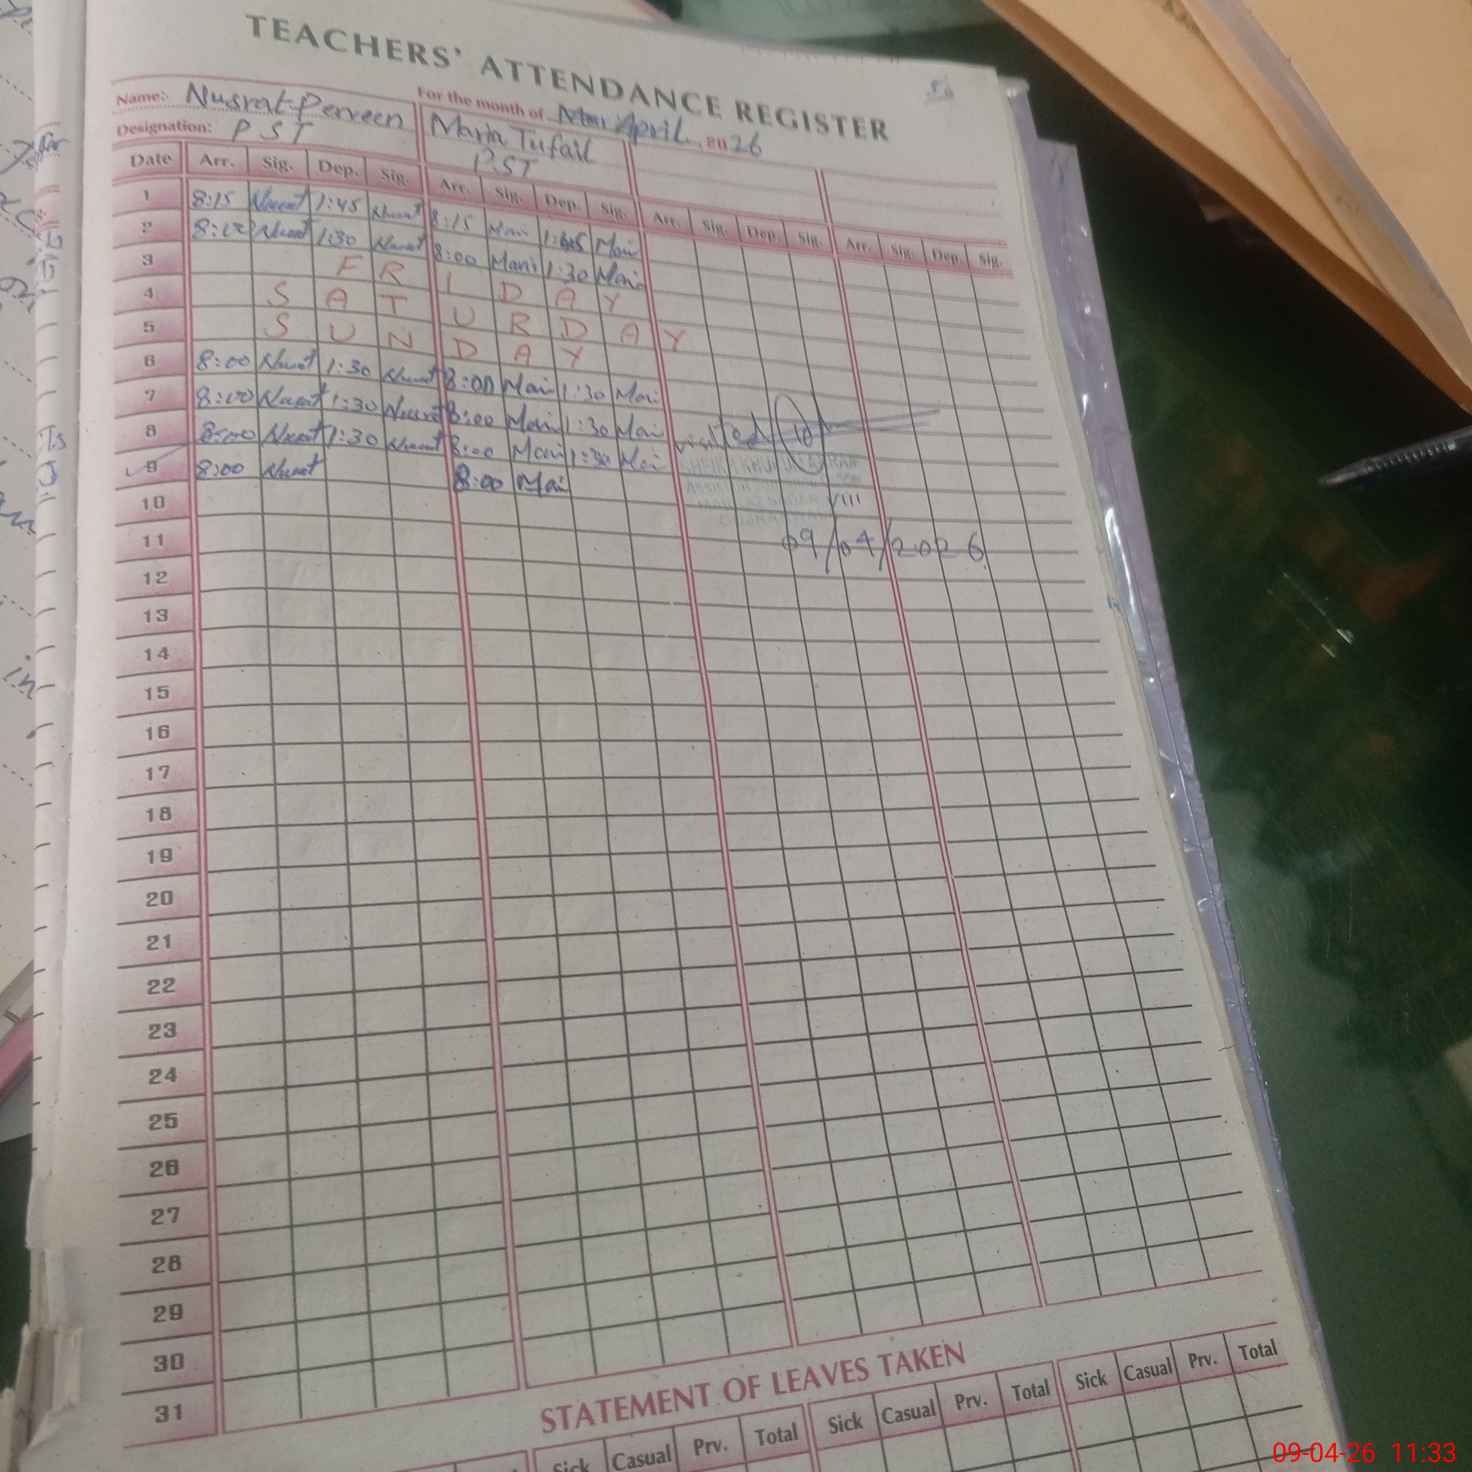 TEACHERS' ATTENDANCE REGISTER
Name: Nusrat Perveen For the month of April, 2026
Designation: PST Maria Tufail
PST
Date Arr. Sig. Dep. Sig. Arr. Sig. Dep. Sig. Arr. Sig. Dep. Sig. Arr. Sig. Dep. Sig.
1 8:15 Nusrat 1:45 Nusrat 8:15 Mari 1:45 Mari
2 8:00 Nusrat 1:30 Nusrat 8:00 Mari 1:30 Mari
3 FRIDAY
4 SATURDAY
5 SUNDAY
6 8:00 Nusrat 1:30 Nusrat 8:00 Mari 1:30 Mari
7 8:00 Nusrat 1:30 Nusrat 8:00 Mari 1:30 Mari
8 8:00 Nusrat 1:30 Nusrat 8:00 Mari 1:30 Mari visited
9 8:00 Nusrat 8:00 Mari
10
11 09/04/2026
12
13
14
15
16
17
18
19
20
21
22
23
24
25
26
27
28
29
30
31
STATEMENT OF LEAVES TAKEN
Sick Casual Prv. Total Sick Casual Prv. Total Sick Casual Prv. Total
09-04-26 11:33